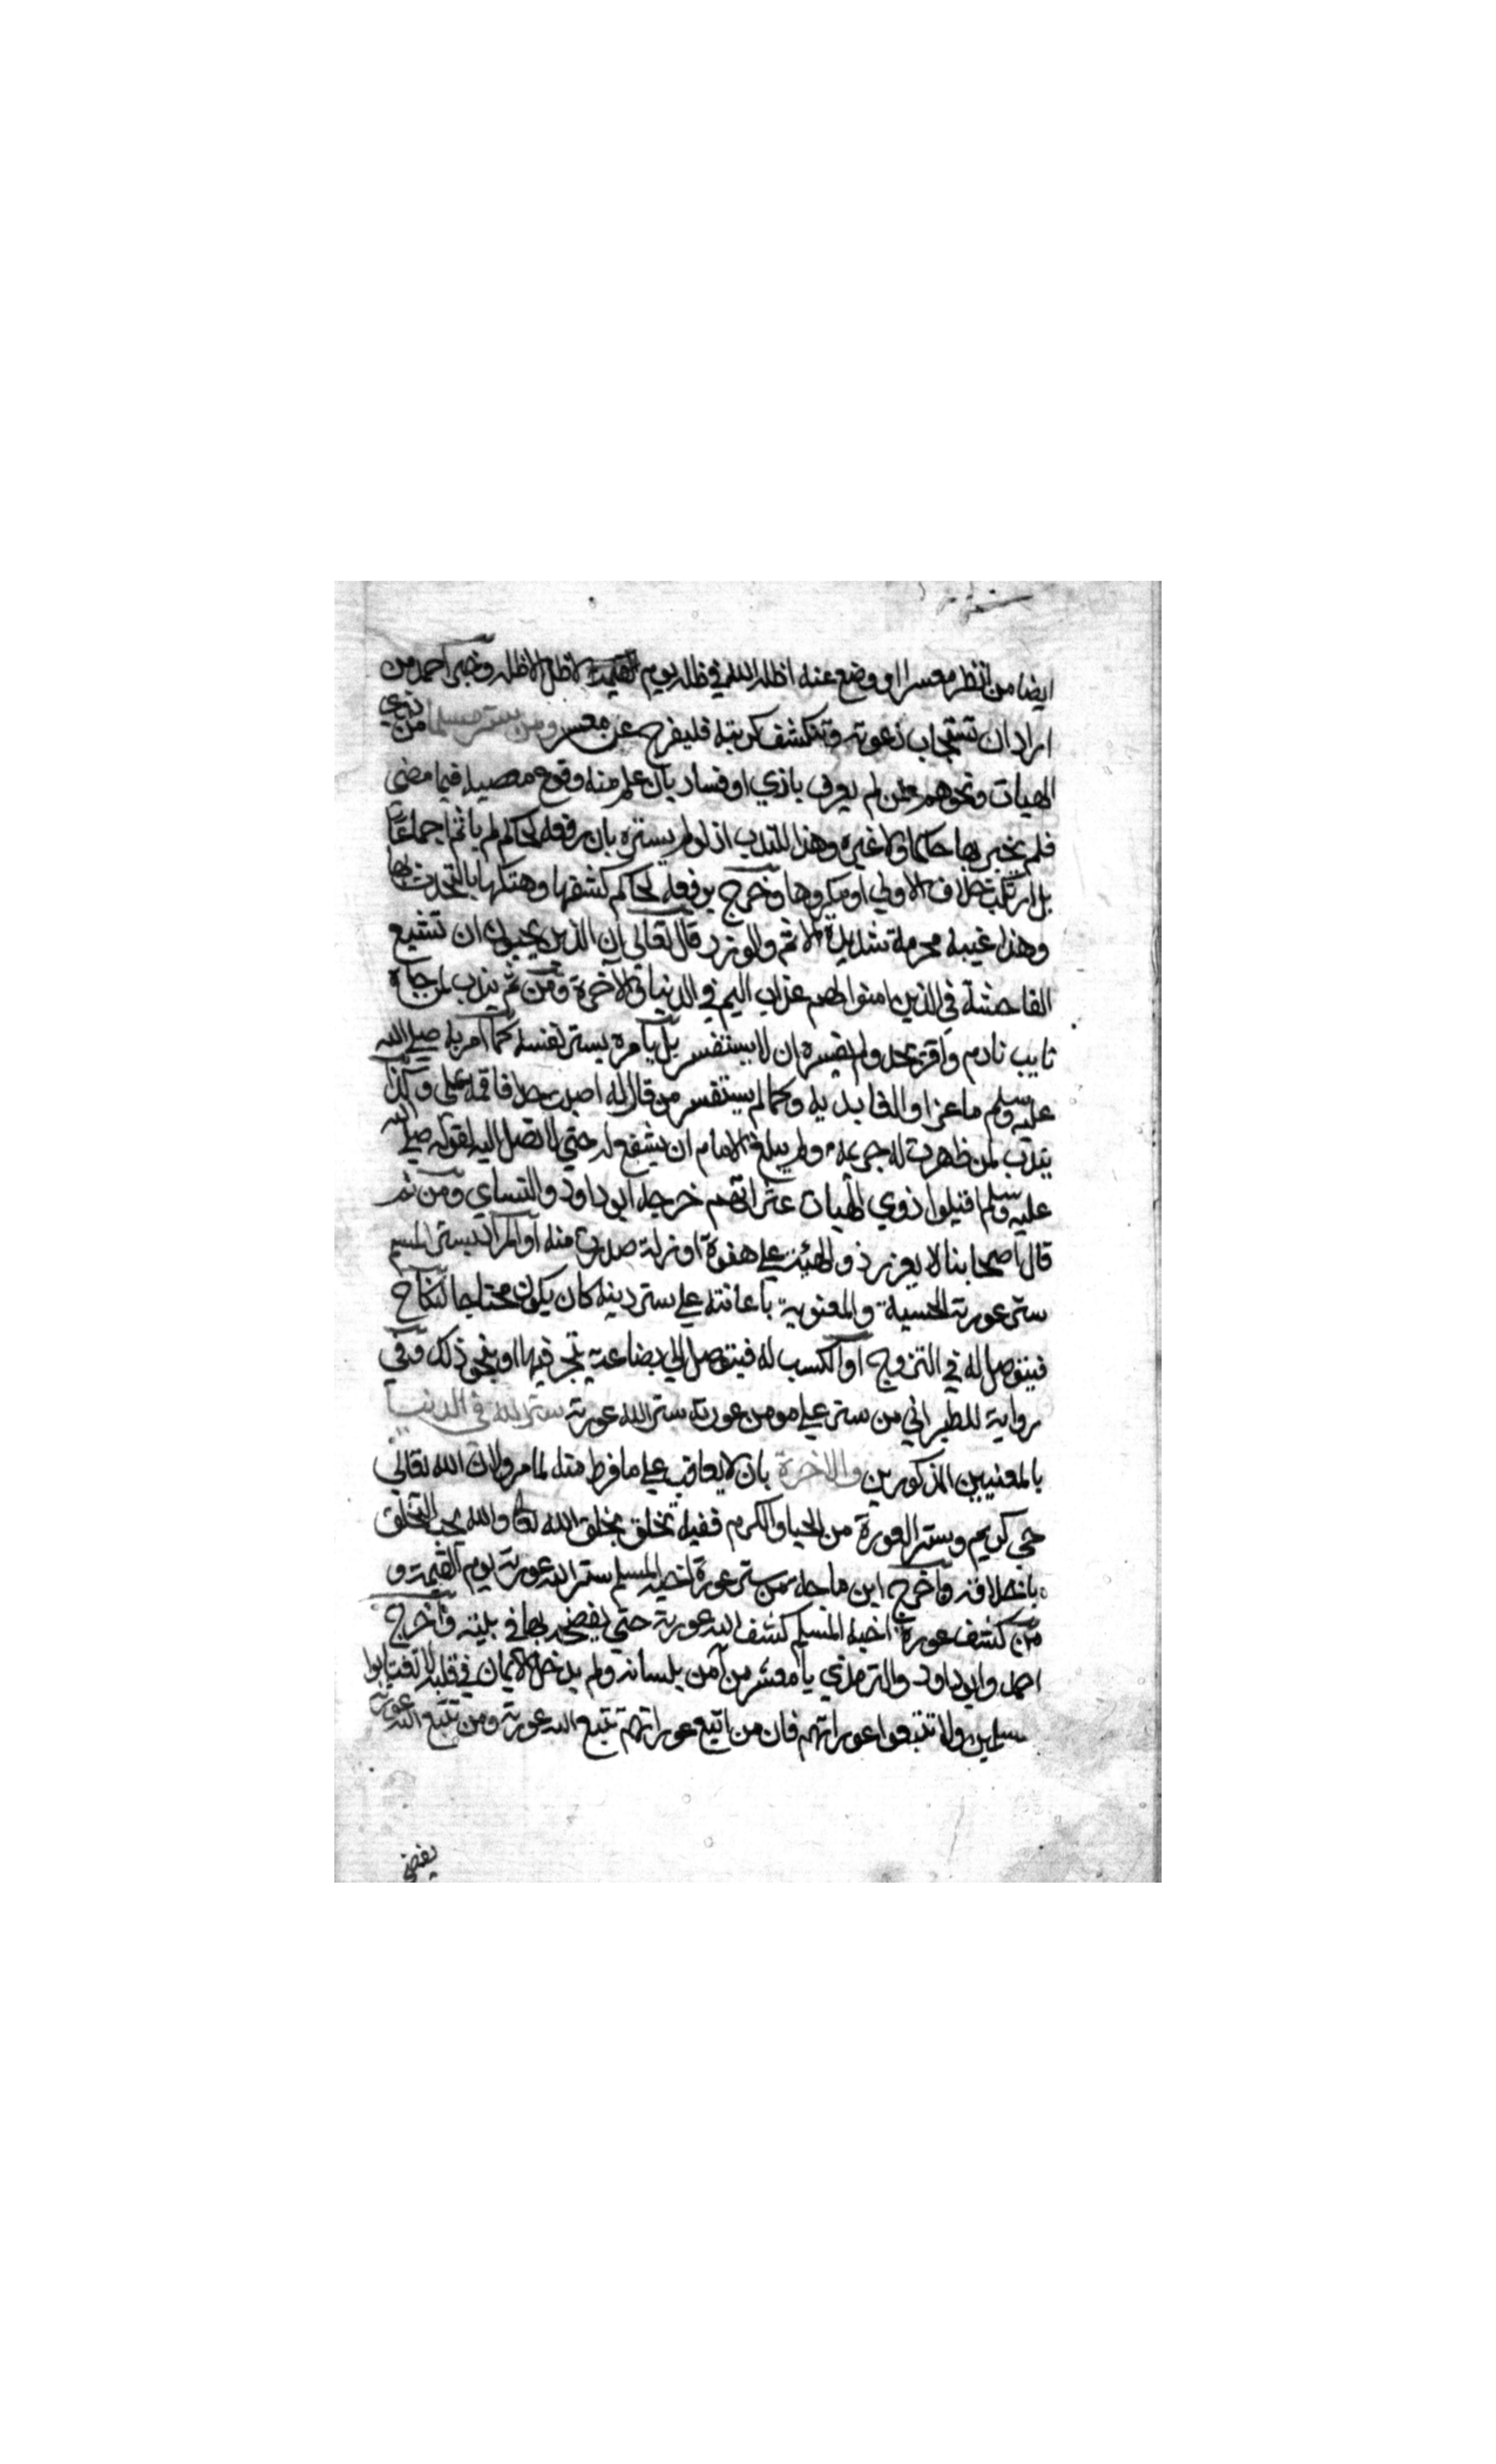 ايضا من انظر معسرا او وضع عنه اظله الله في ظله يوم القيمة لا ظل الا ظله وخبر احمد من
اراد ان تستجاب دعوته وتنكشف كربته فليفرج عن معسر ومن ستر مسلما من ذوي
الهيات ونحوهم ممن لم يعرف باذي او فساد بان علم منه وقوع معصية فيما مضي
فلم يخبر بها حاكما ولا غيره وهذا للندب اذ لو لم يستره بان رفعه لحاكم لم ياثم اجماعا
بل ارتكب خلاف الاولي او مكروها وخرج برفعه لحاكم كشفها وهتكها بالتحدث بها
وهذا غيبة محرمة شديدة الاثم والوزر قال تعالي ان الذين يحبون ان تشيع
الفاحشة في الذين امنوا لهم عذاب اليم في الدنيا والاخرة ومن ثم يندب لمن جاه
تايب نادم واقر بحد ولم يفسره ان لا يستفسر بل يامره بستر نفسه كما امر به صلي الله
عليه وسلم ماعزا والغامدية وكما لم يستفسر من قال له اصبت حدا فاقمه علي وكذا
يندب لمن ظهرت له جريمة ولم يبلغ الامام ان يشفع له حتي لا تصل اليه لقوله صلي الله
عليه وسلم اقيلوا ذوي الهيات عثراتهم خرجه ابو داود والنساي ومن ثم
قال اصحابنا لا يعزر ذو الهيئة علي هفوة او زلة صدرت منه او المراد بستر المسلم
ستر عورته الحسية والمعنوية باعانته علي ستر دينه كان يكون محتاجا لنكاح
فيتوصل له في التزوج او الكسب له فيتوصل الي بضاعة يتجر فيها او نحو ذلك وفي
رواية للطبراني من ستر علي مومن عورته ستر الله عورته ستره الله في الدنيا
بالمعنيين المذكورين والاخرة بان لا يعاقب علي ما فرط منه لما مر ولان الله تعالي
حي كريم وستر العورة من الحيا والكرم ففيه تخلق بخلق الله تعالي والله يحب التخلق
باخلاقه واخرج ابن ماجه من ستر عورة اخيه المسلم ستر الله عورته يوم القيمة و
من كشف عورة اخيه المسلم كشف الله عورته حتي يفضحه بها في بيته واخرج
احمد وابو داود والترمذي يا معشر من آمن بلسانه ولم يدخل الايمان في قلبه لا تغتابوا
مسلمين ولا تتبعوا عوراتهم فان من اتبع عوراتهم تتبع الله عورته ومن تتبع الله عورته
يفضحه